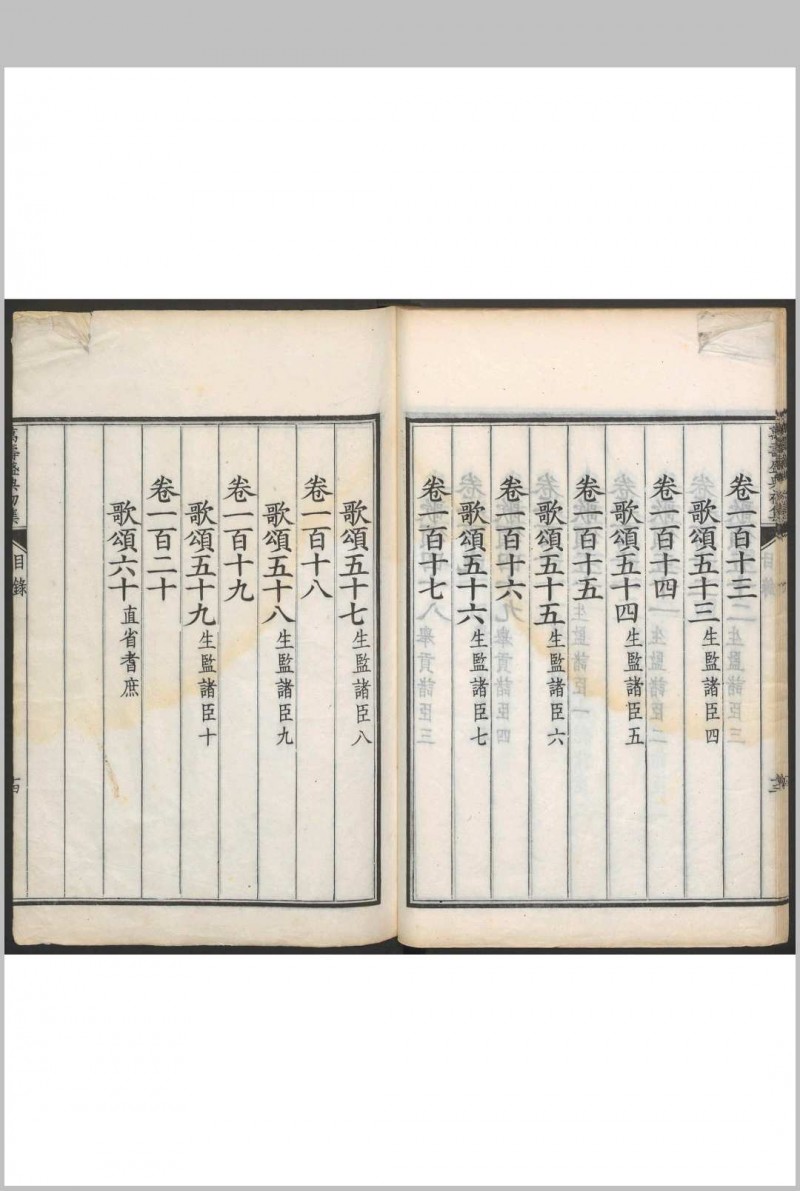 卷一百十三
歌頌五十三 生監諸臣四
卷一百十四
歌頌五十四 生監諸臣五
卷一百十五
歌頌五十五 生監諸臣六
卷一百十六
歌頌五十六 生監諸臣七
卷一百十七
歌頌五十七 生監諸臣八
卷一百十八
歌頌五十八 生監諸臣九
卷一百十九
歌頌五十九 生監諸臣十
卷一百二十
歌頌六十 直省耆庶
萬壽盛典初集 目錄